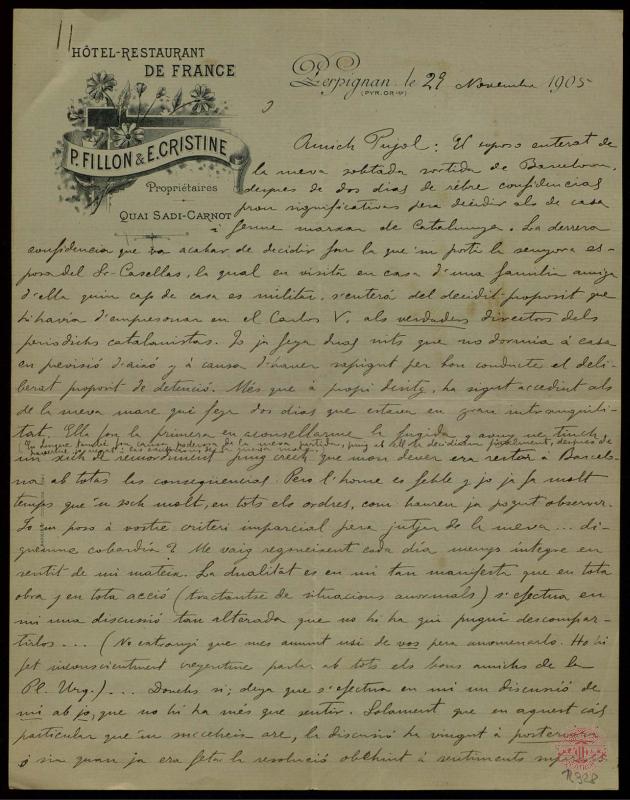 11
HÔTEL-RESTAURANT
DE FRANCE
P. FILLON & E. CRISTINE
Propriétaires
QUAI SADI-CARNOT
Perpignan, le 29 Novembre 1905
(PYR. OR-les)
Amich Pujol: El suposo enterat de
la meva sobtada sortida de Barcelona,
despres de dos dias de rebre confidencias
prou significativas pera decidir als de casa
i ferme marxar de Catalunya. La derrera
confidencia que va acabar de decidir fou la que 'm portá la senyora es-
posa del Sr. Casellas, la qual en visita en casa d'una familia amiga
d'ella quin cap de casa es militar, s'enterá del decidit proposit que
hi havia d'empresonar en el Carlos V. als verdaders directors dels
periodichs catalanistas. Jo ja feya duas nits que no dormia á casa
en previsió d'aixó y á causa d'haver sapigut per bon conducte el deli-
berat proposit de detenció. Més que á propi desitg, ha sigut accedint als
de la meva mare qui feya dos dias que estava en gran intranquili-
tat. Ella fou la primera en aconsellarme la fugida y avuy ne tinch
un xich de remordiment puig crech que mon dever era restar á Barcelo-
na ab totas las consequencias. Pero l'home es feble y jo ja fa molt
temps que 'n soch molt, en tots els ordres, com haureu ja pogut observar.
Jo 'm poso á vostre criteri imparcial pera jutjar de la meva... di-
guemne cobardía? Me vaig regoneixent cada día menys íntegre en
sentit de mi mateix. La dualitat es en mi tan manifesta que en tota
obra y en tota acció (tractantse de situacions anormals) s'efectua en
mi una discusió tan alterada que no hi ha qui pugui descompar-
tirlos... (No extranyi que mes amunt usi de vos pera anomenarlo. Ho hi
fet inconscientment creyentme parlar ab tots els bons amichs de la
Pl. Urq.)... Donchs si; deya que s'efectua en mi un discusió de
mi ab jo, que no hi ha més que sentir. Solament que en aquest cás
particular que 'm succeheix are, la discusió ha vingut á posteriori
ó sia quan ja era feta la resolució obehint á sentiments
R. 328